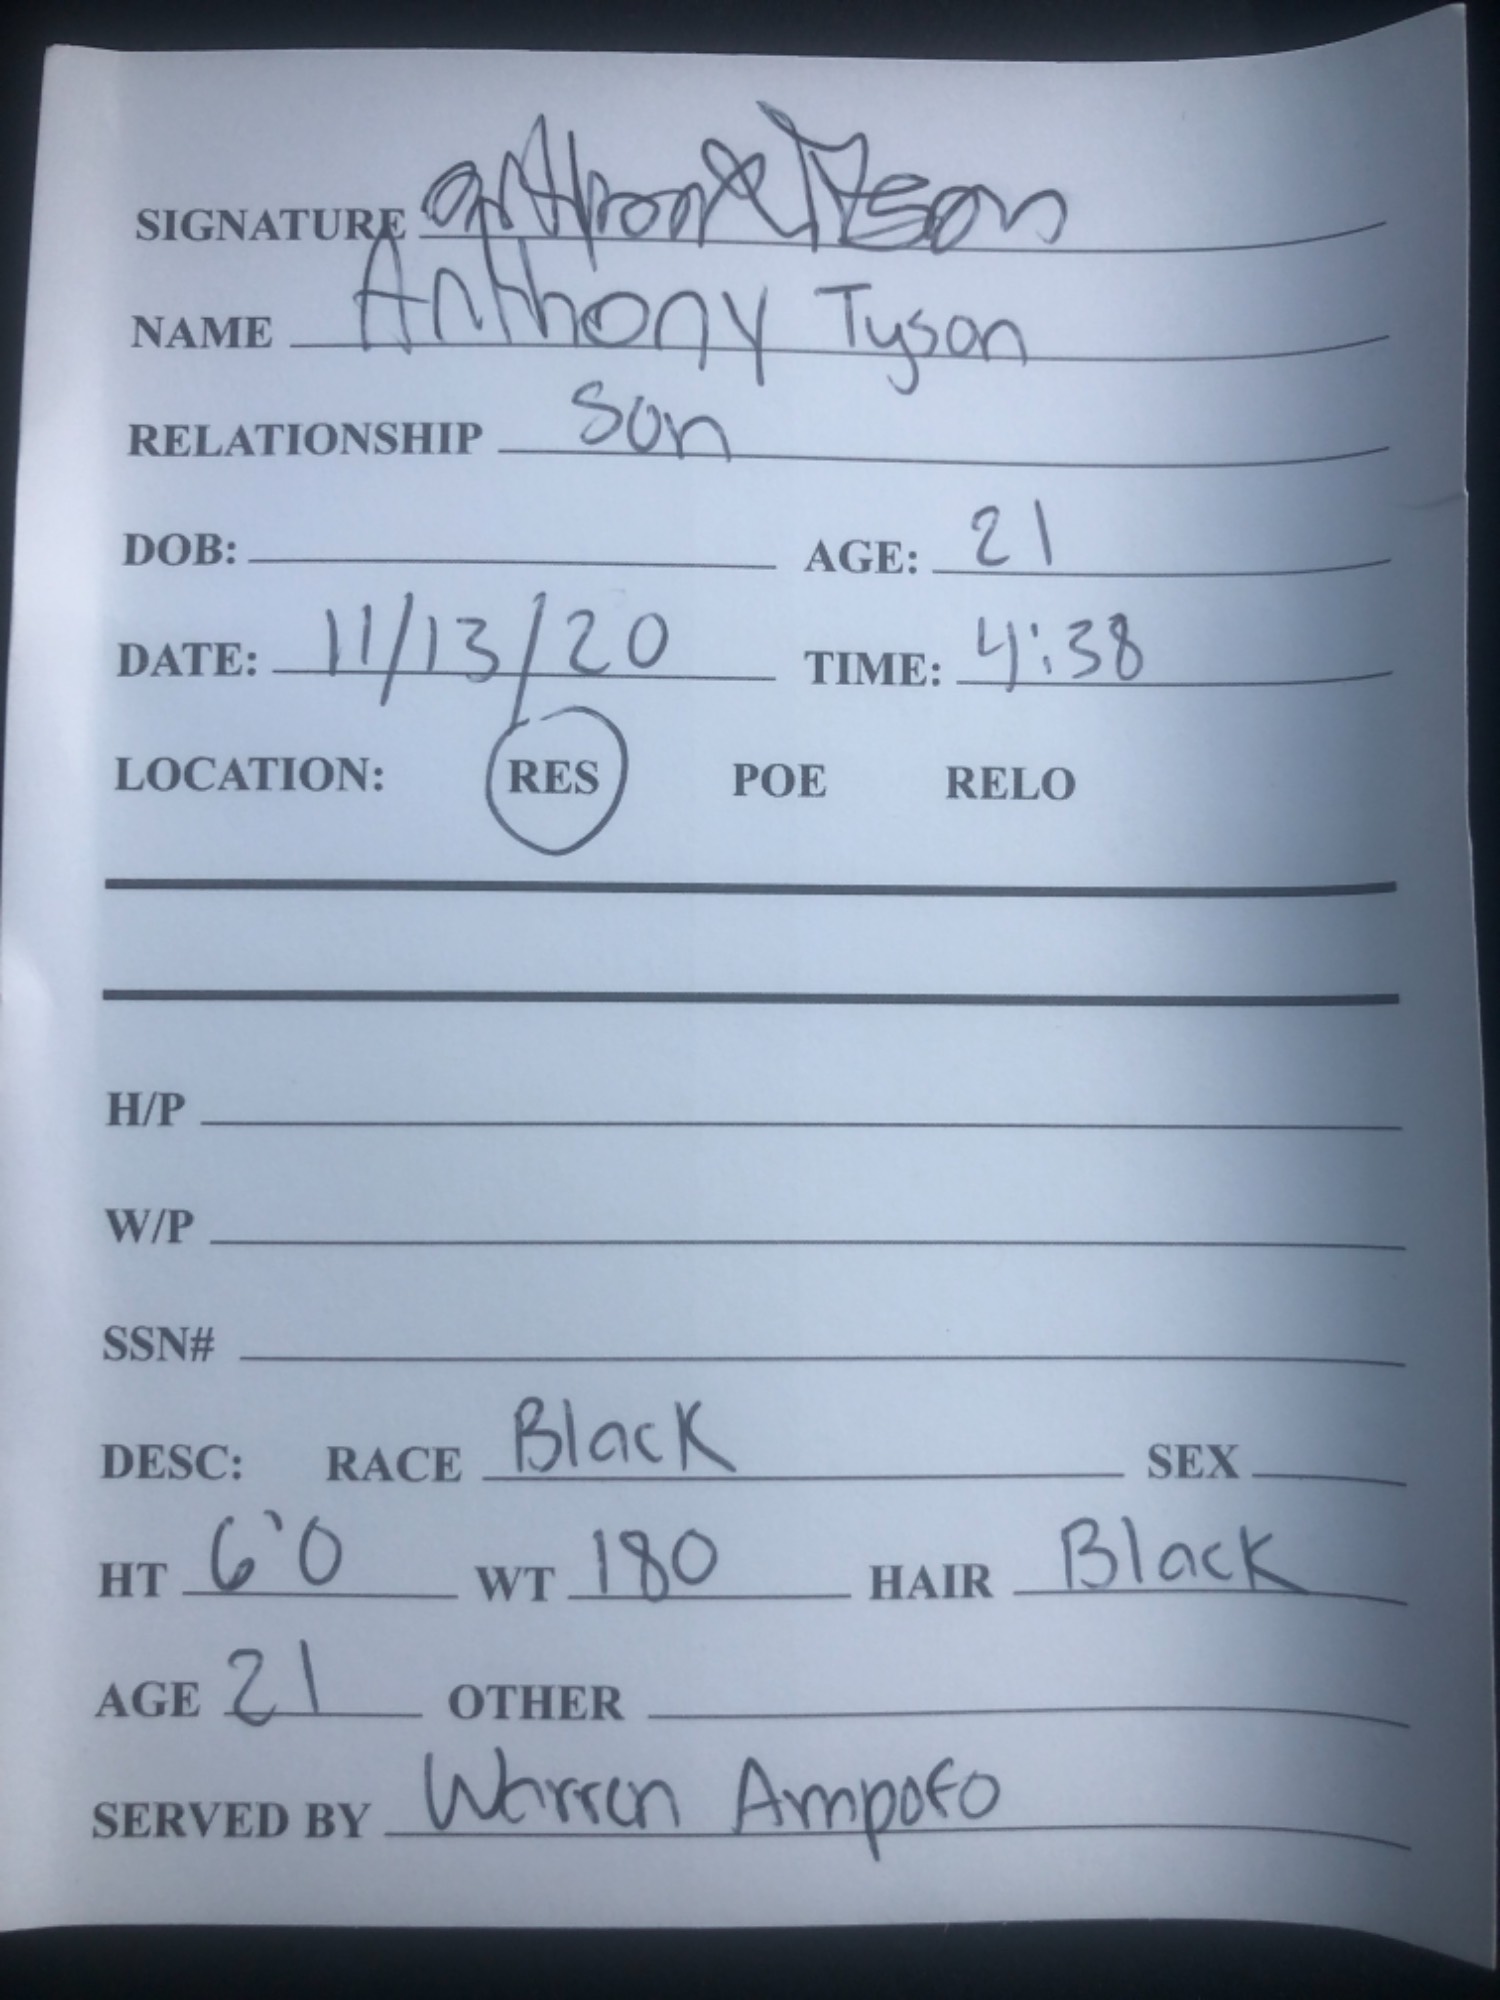 SIGNATURE Anthony Tyson
NAME Anthony Tyson
RELATIONSHIP Son
DOB: AGE: 21
DATE: 11/13/20 TIME: 4:38
LOCATION: RES POE RELO
H/P
W/P
SSN#
DESC: RACE Black SEX
HT 6'0 WT 180 HAIR Black
AGE 21 OTHER
SERVED BY Warren Ampofo